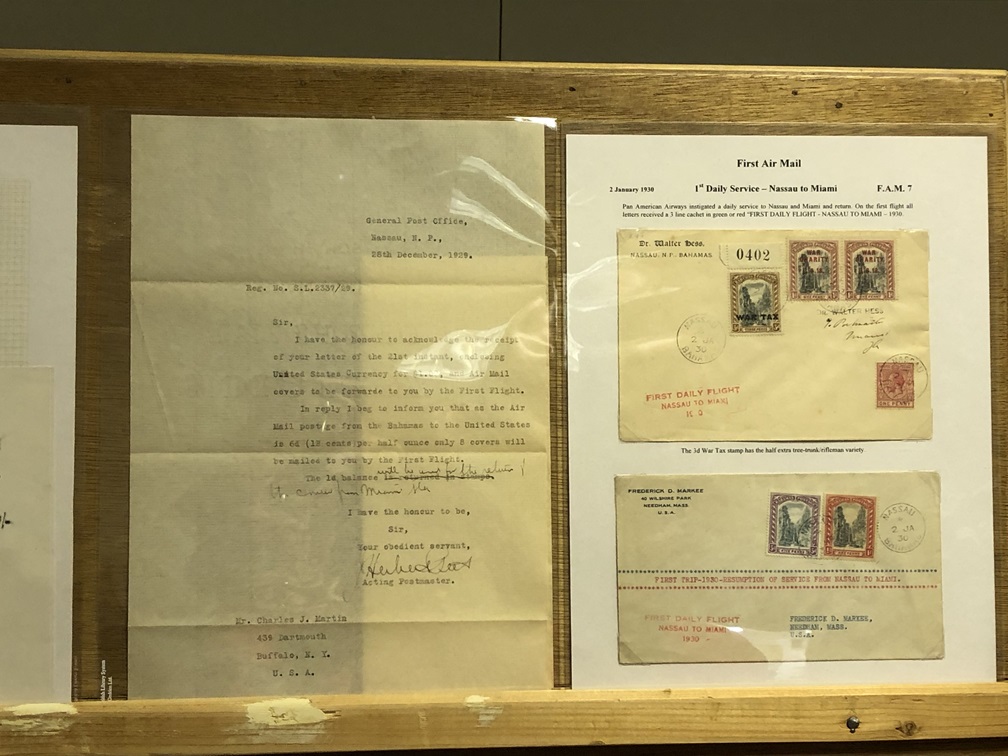 General Post Office,
Nassau, N. P.,
28th December, 1929.
Reg. No. S.L.2337/29.
Sir,
I have the honour to acknowledge the receipt
of your letter of the 21st instant, enclosing
United States Currency for Air Mail
covers to be forwarde to you by the First Flight.
In reply I beg to inform you that as the Air
Mail postage from the Bahamas to the United States
is 6d (12 cents per half ounce only 8 covers will
be mailed to you by the First Flight.
The 1d balance is returned in stamps.
will be used for the return
from Miami
I have the honour to be,
Sir,
Your obedient servant,
Acting Postmaster.
Mr. Charles J. Martin
439 Dartmouth
Buffalo, N. Y.
U. S. A.
First Air Mail
2 January 1930 1st Daily Service – Nassau to Miami F.A.M. 7
Pan American Airways instigated a daily service to Nassau and Miami and return. On the first flight all
letters received a 3 line cachet in green or red "FIRST DAILY FLIGHT - NASSAU TO MIAMI – 1930.
Dr. Walter Hess.
NASSAU, N.P. BAHAMAS
0402
WAR
CHARITY
WAR
CHARITY
WAR TAX
WALTER HESS
NASSAU
2 JA
30
BAHAMAS
NASSAU
ONE PENNY
FIRST DAILY FLIGHT
NASSAU TO MIAMI
The 3d War Tax stamp has the half extra tree-trunk/rifleman variety.
FREDERICK D. MARKEE
40 WILSHIRE PARK
NEEDHAM, MASS.
U.S.A.
NASSAU
2 JA
30
BAHAMAS
FIRST TRIP-1930-RESUMPTION OF SERVICE FROM NASSAU TO MIAMI.
FIRST DAILY FLIGHT
NASSAU TO MIAMI
1930 -
FREDERICK D. MARKEE,
NEEDHAM, MASS.
U.S.A.